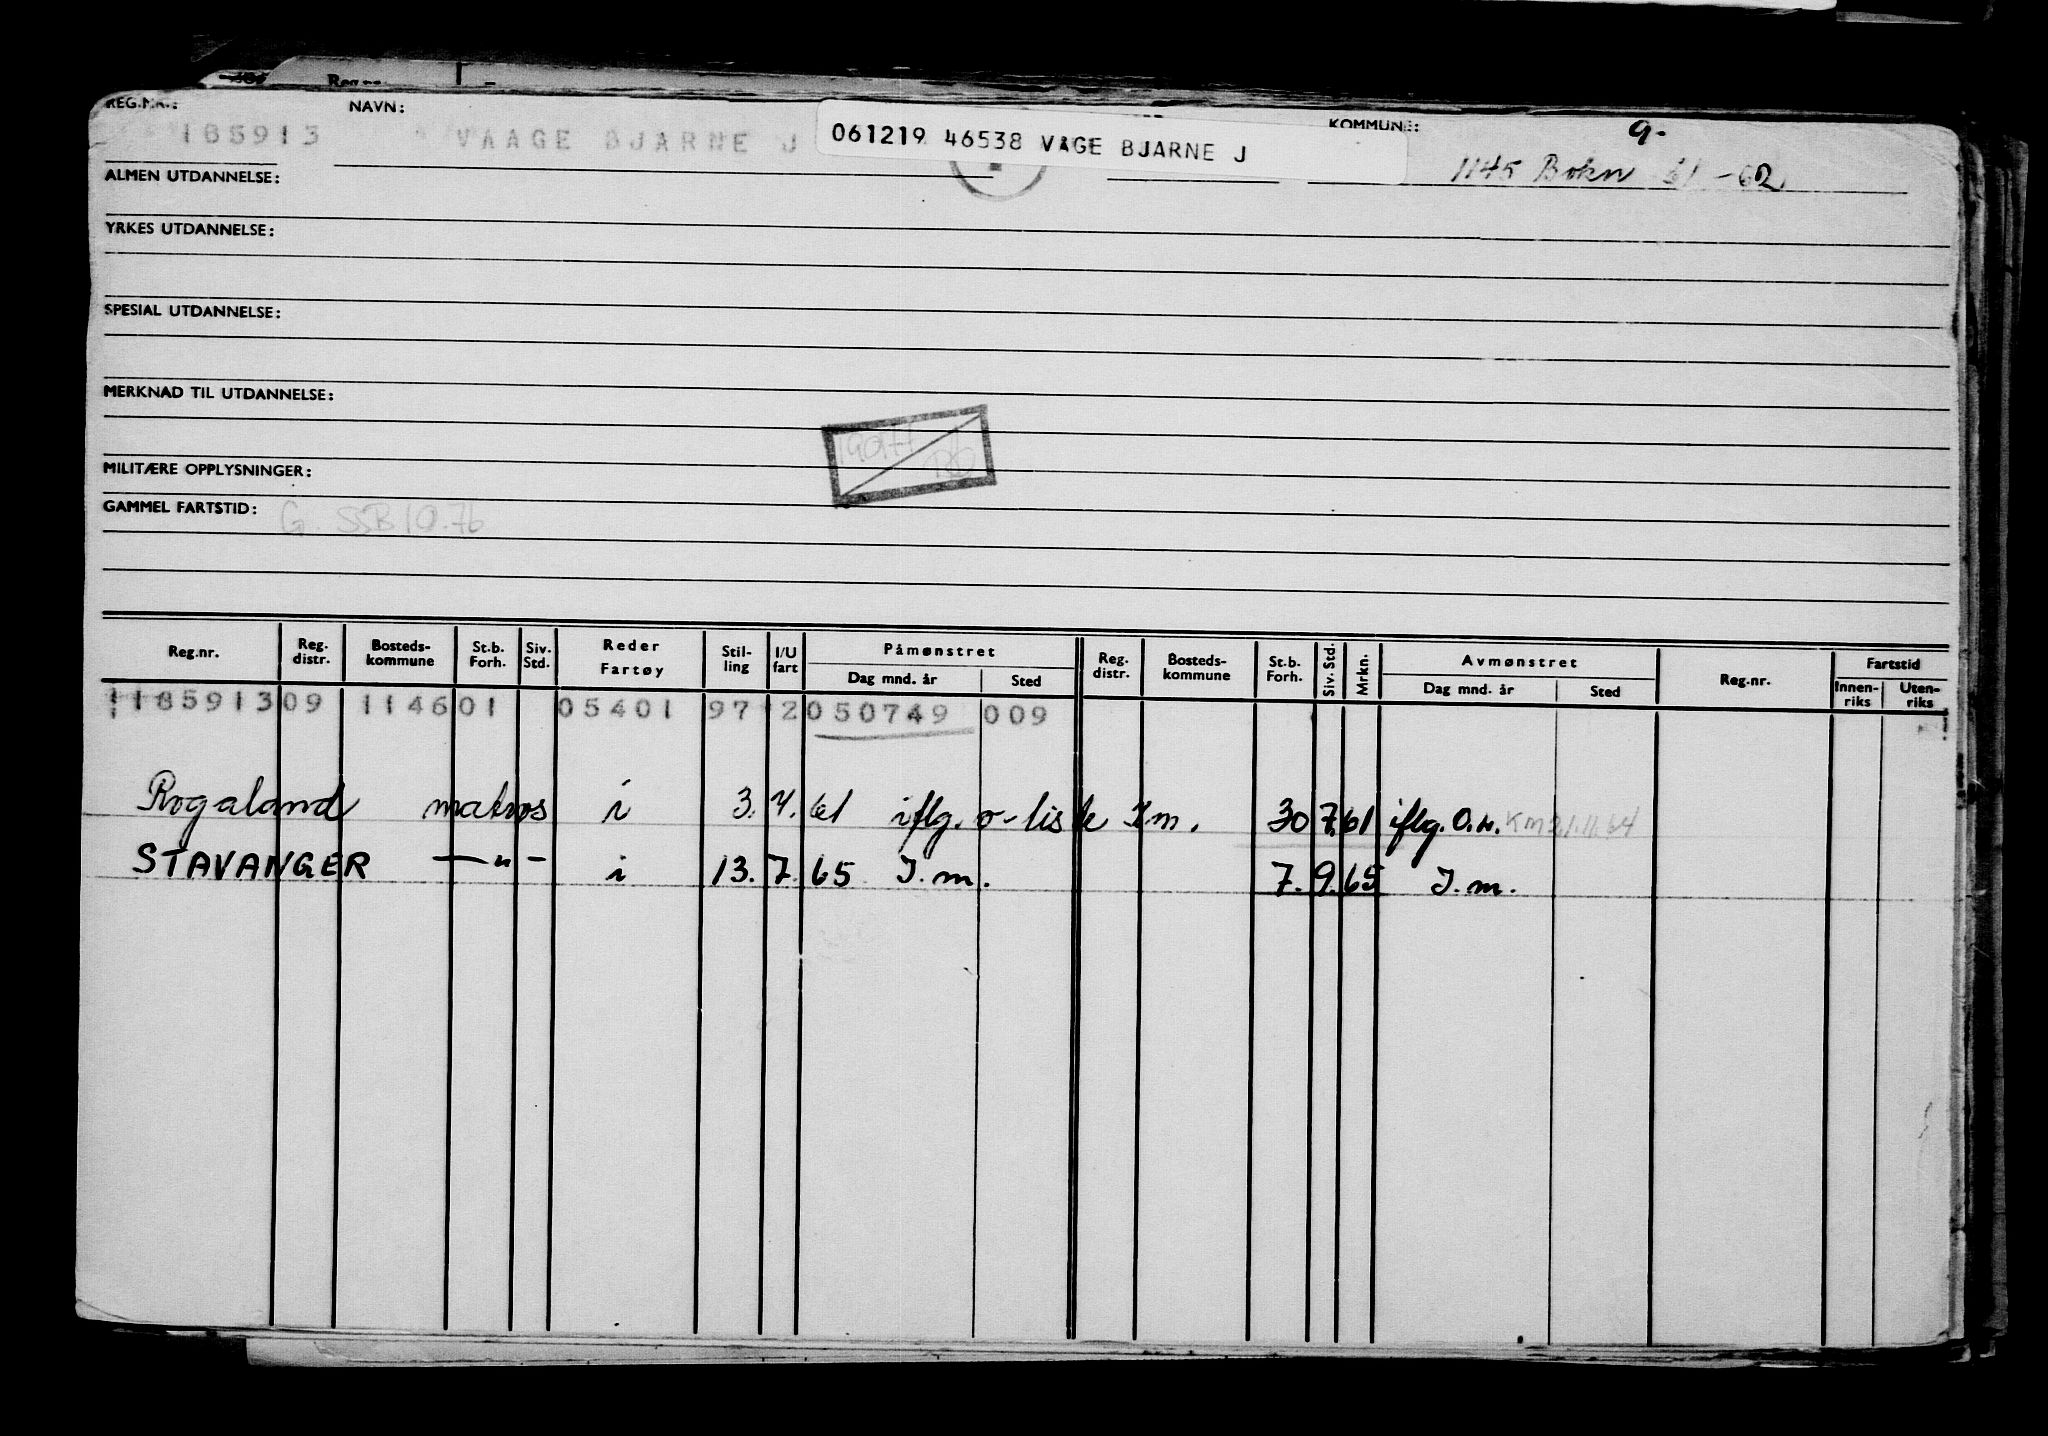 REG.NR.: NAVN: KOMMUNE: 9-
185913 VAAGE BJARNE J 061219 46538 VAGE BJARNE J 1145 Bokn 61-62
ALMEN UTDANNELSE:
YRKES UTDANNELSE:
SPESIAL UTDANNELSE:
MERKNAD TIL UTDANNELSE:
MILITÆRE OPPLYSNINGER:
GAMMEL FARTSTID: G. SSB 10.76
Reg.nr. Reg. distr. Bosteds- kommune St.b. Forh. Siv. Std. Reder Fartøy Stil- ling I/U fart Påmønstret Dag mnd. år Sted Reg. distr. Bosteds- kommune St.b. Forh. Siv. Std. Mrkn. Avmønstret Dag mnd. år Sted Reg.nr. Fartstid Innen- riks Uten- riks
185913 09 1146 01 05401 97 2 050749 009
Rogaland matros i 3. 4. 61 iflg. o-liste I.m. 30 7. 61 iflg. O.n. KM 21.11.64
STAVANGER —"— i 13. 7. 65 I.m. 7. 9. 65 I.m.